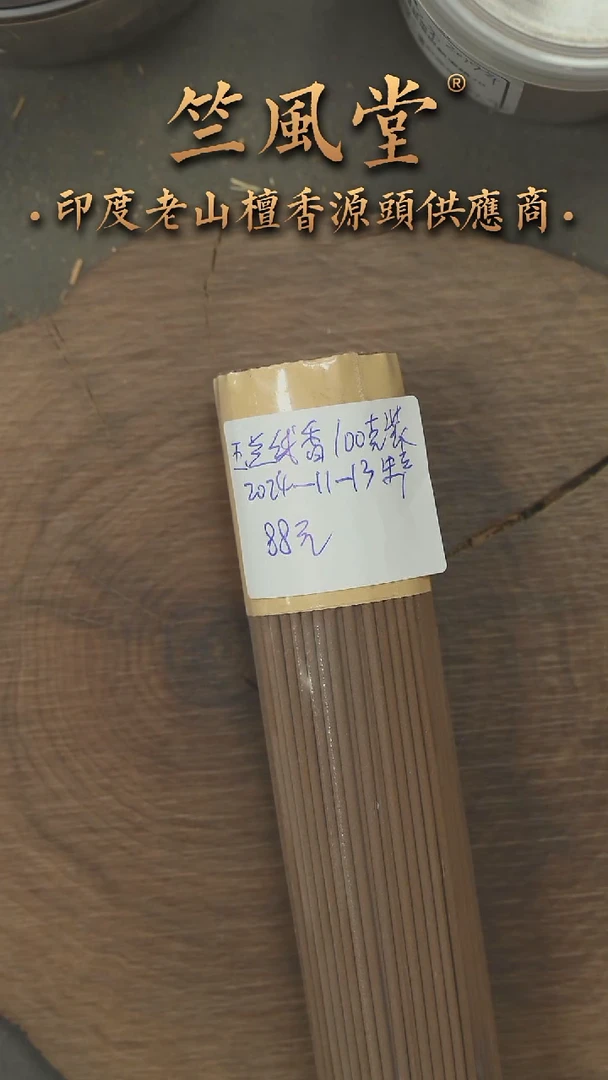 竺風堂®
·印度老山檀香源頭供應商·
线香100克装
2024-11-13
88元